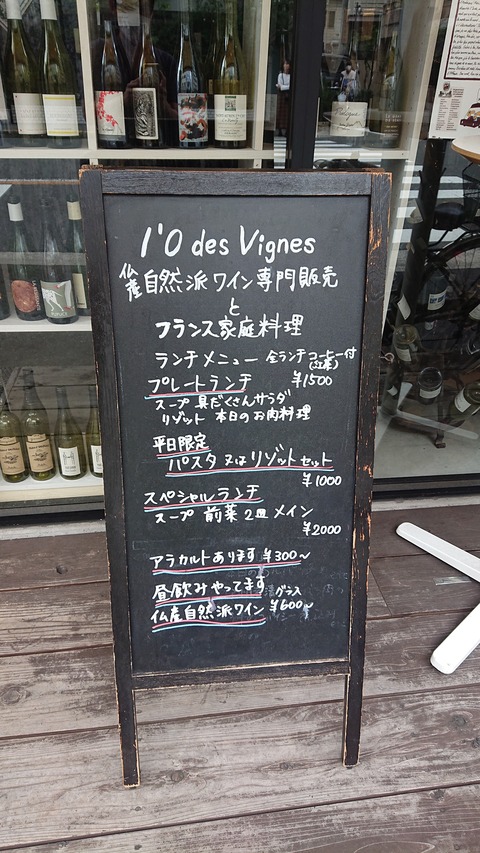 l'O des Vignes
仏産自然派ワイン専門販売
と
フランス家庭料理
ランチメニュー 全ランチコーヒー付
(紅茶)
プレートランチ ¥1500
スープ 具だくさんサラダ
リゾット 本日のお肉料理
平日限定
パスタ又はリゾットセット
¥1000
スペシャルランチ
スープ 前菜2皿 メイン
¥2000
アラカルトあります ¥300~
昼飲みやってます
仏産自然派ワイン グラス ¥600~